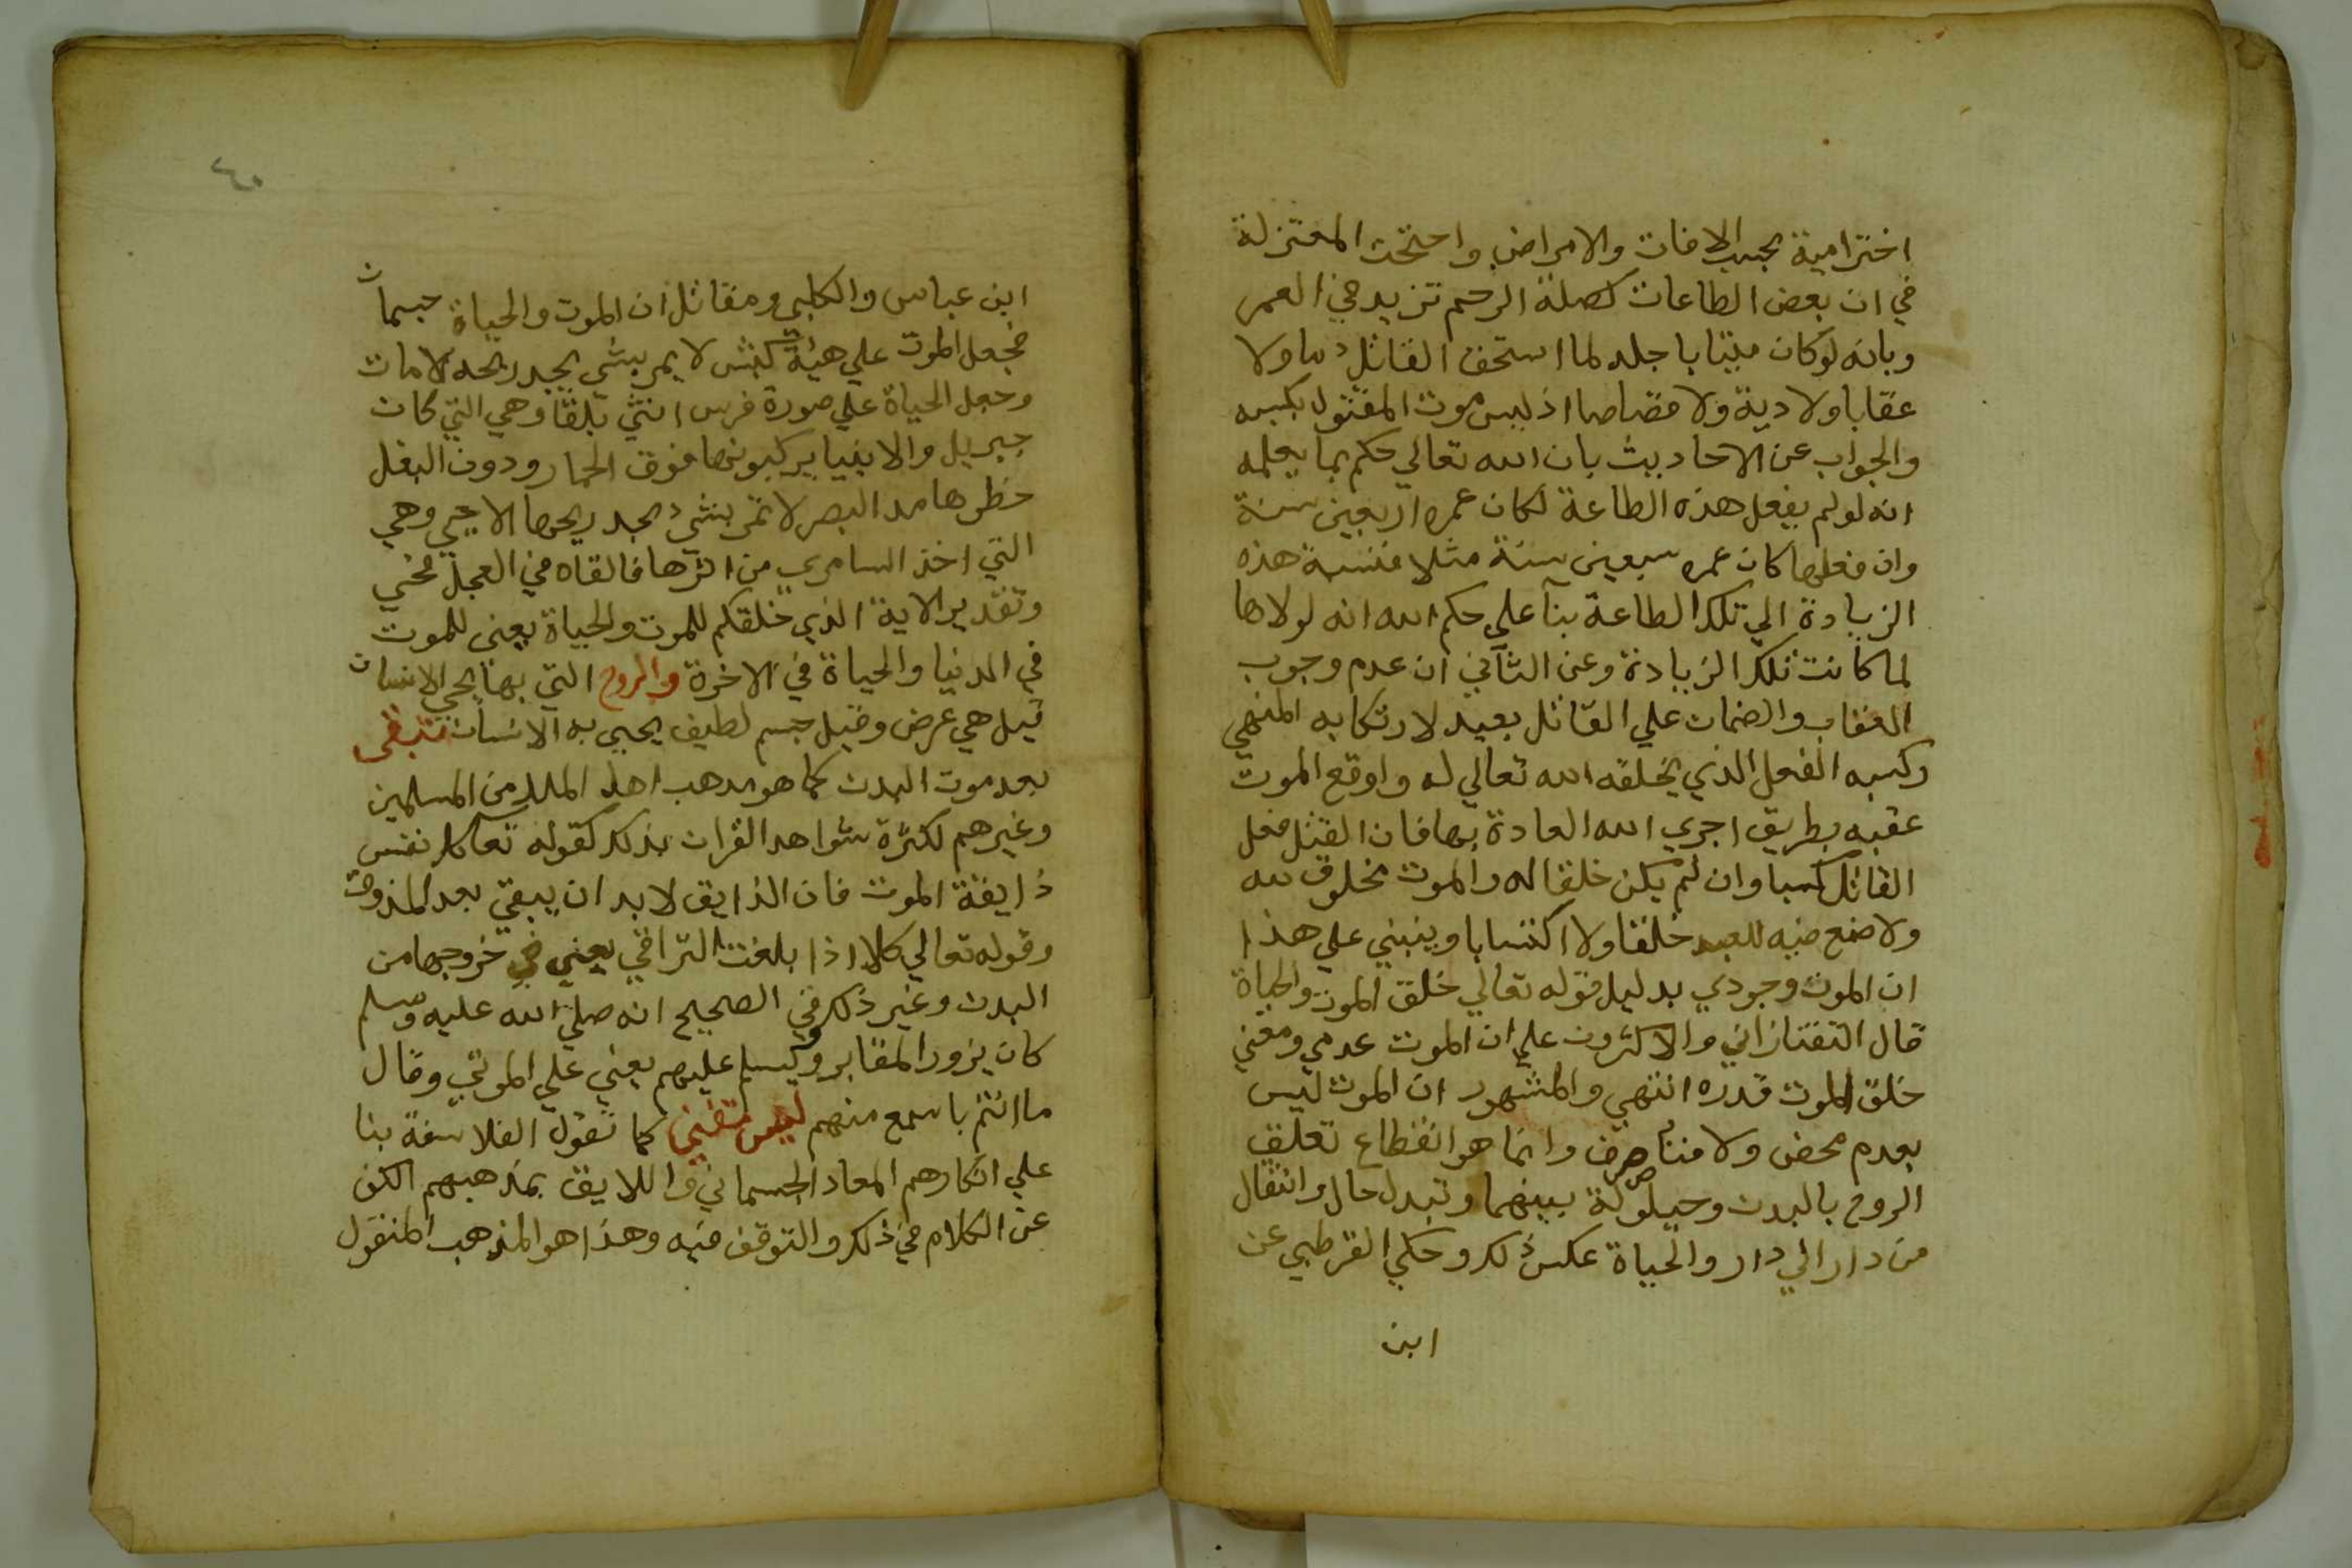 اخترامية بحسب الافات والامراض واحتجت المعتزلة
في ان بعض الطاعات كصلة الرحم تزيد في العمر
وبانه لو كان ميتا باجله لما استحق القاتل ذما ولا
عقابا ولا دية ولا قصاصا اذ ليس موت المقتول بكسبه
والجواب عن الاحاديث بان الله تعالي حكم بما يعلمه
انه لو لم يفعل هذه الطاعة لكان عمره اربعين سنة
وان فعلها كان عمره سبعين سنة مثلا فنسبة هذه
الزيادة الي تلك الطاعة بنآ علي حكم الله انه لولاها
لما كانت تلك الزيادة وعن الثاني ان عدم وجوب
العقاب والضمان علي القاتل بعيد لارتكابه المنهي
وكسبه الفعل الذي يخلقه الله تعالي له واوقع الموت
عقبه بطريق اجري الله العادة بها فان القتل فعل
القاتل كسبا وان لم يكن خلقا له والموت مخلوق لله
ولا صنع فيه للعبد خلقا ولا اكتسابا وينبني علي هذا
ان الموت وجودي بدليل قوله تعالي خلق الموت والحياة
قال التفتازاني والاكثرون علي ان الموت عدمي ومعني
خلق الموت قدره انتهي والمشهور ان الموت ليس
بعدم محض ولا فنا صرف وانما هو انقطاع تعلق
الروح بالبدن وحيلولة بينهما وتبدل حال وانتقال
من دار الي دار والحياة عكس ذلك وحكي القرطبي عن
ابن
٤٠
ابن عباس والكلبي ومقاتل ان الموت والحياة جسمان
فجعل الموت علي هيئة كبش لا يمر بشي يجد ريحه الا مات
وجعل الحياة علي صورة فرس انثي بلقا وهي التي كان
جبريل والانبيا يركبونها فوق الحمار ودون البغل
خطوها مد البصر لا تمر بشي يجد ريحها الا حيي وهي
التي اخذ السامري من اثرها فالقاه في العجل فحيي
وتقدير الاية الذي خلقكم للموت والحياة يعني للموت
في الدنيا والحياة في الاخرة والروح التي بها يحي الانسان
قيل هي عرض وقيل جسم لطيف يحيي به الانسان تبقى
بعد موت البدن كما هو مدهب اهل الملل من المسلمين
وغيرهم لكثرة شواهد القران بذلك كقوله تعا كل نفس
ذايقة الموت فان الذايق لا بد ان يبقي بعد المذوق
وقوله تعالي كلا اذا بلغت التراقي يعني في خروجها من
البدن وغير ذلك وفي الصحيح انه صلي الله عليه وسلم
كان يزور المقابر ويسلم عليهم يعني علي الموتي وقال
ما انتم باسمع منهم ليس تفني كما تقول الفلاسفة بنا
علي انكارهم المعاد الجسماني واللايق بمذهبهم الكف
عن الكلام في ذلك والتوقف فيه وهذا هو المذهب المنقول